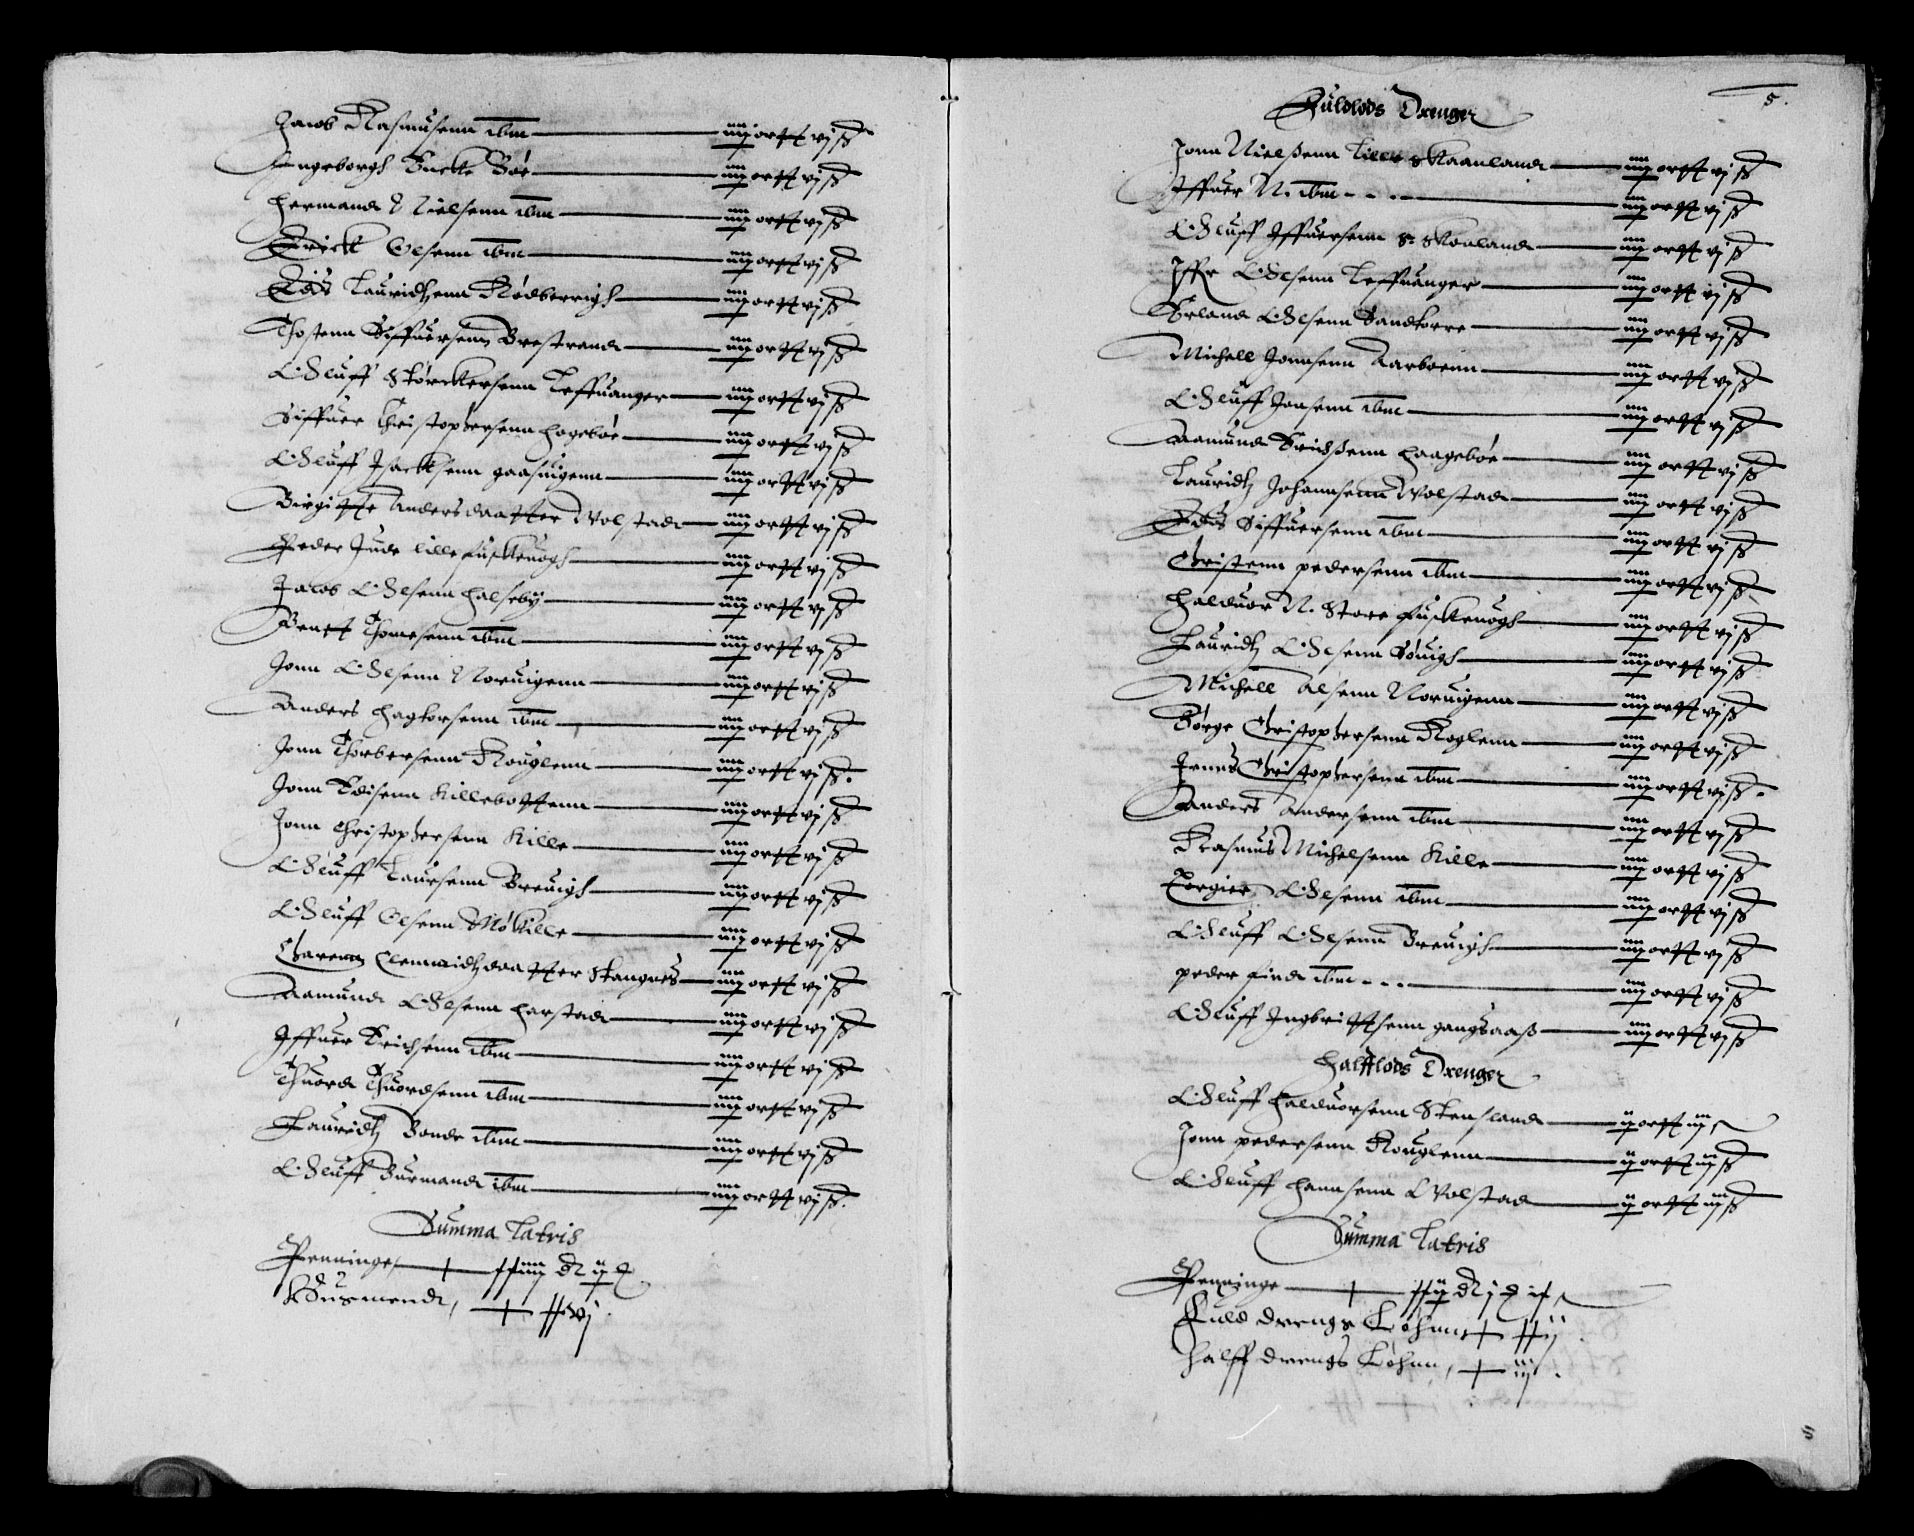 Jacob Rasmusenn ibm — iiij ortt vj ß
Ingeborgh Bucke Bøe — iiij ortt vj ß
Hermand Nielsenn ibm — iiij ortt vj ß
Erick Olsenn ibm — iiij ortt vj ß
Edis Lauridtzenn Rødberrigh — iiij ortt vj ß
Thostenn Siffuersenn Brestrand — iiij ortt vj ß
Oluff Størckersenn Leffuanger — iiij ortt vj ß
Siffuer Christophersenn Hagebøe — iiij ortt vj ß
Oluff Isacksenn gaasuigenn — iiij ortt vj ß
Birgitte Andersdaatter Wolstad — iiij ortt vj ß
Peder Jude lille fuskeuogh — iiij ortt vj ß
Jacob Olsenn Halsebÿ — iiij ortt vj ß
Bentt Thomesenn ibm — iiij ortt vj ß
Jonn Olsenn Noruigenn — iiij ortt vj ß
Anders Hagtorsenn ibm — iiij ortt vj ß
Jonn Thorbersenn Rouglenn — iiij ortt vj ß
Jonn Edisenn Killebottenn — iiij ortt vj ß
Jonn Christophersenn Kille — iiij ortt vj ß
Oluff Laursenn Breuigh — iiij ortt vj ß
Oluff Olsenn Møkille — iiij ortt vj ß
Karenn Clemmidtzdaatter Stangnes — iiij ortt vj ß
Aamund Olsenn Harstad — iiij ortt vj ß
Iffuer Erichsenn ibm — iiij ortt vj ß
Thuord Thuordsenn ibm — iiij ortt vj ß
Lauridtz Bonde ibm — iiij ortt vj ß
Oluff Burmand ibm — iiij ortt vj ß.
Summa Latris
Penninge
Husmend, — xxvj.
5.
Fuldlods Drenger
Jonn Nielßenn Lille Skaanland — iiij ortt vj ß
Iffuer N. ibm — iiij ortt vj ß
Oluff Iffuersenn S: Skonland — iiij ortt vj ß
Iffr Olsenn Leffuanger — iiij ortt vj ß
Erland Olsenn Sandtorre — iiij ortt vj ß
Michell Jonnsenn Aarboenn — iiij ortt vj ß
Oluff Jonsenn ibm — iiij ortt vj ß
Aamund Erichßenn Haagebøe — iiij ortt vj ß
Lauridtz Johannsenn Wolstad — iiij ortt vj ß
Edis Siffuersenn ibm — iiij ortt vj ß
Christenn pedersenn ibm — iiij ortt vj ß
Halduor N. Store Fuskeuogh — iiij ortt vj ß
Lauridtz Olsenn Søuigh — iiij ortt vj ß
Michell Alsenn Noruigenn — iiij ortt vj ß
Børge Christophersenn Roglenn — iiij ortt vj ß
Jenns Christophersenn ibm — iiij ortt vj ß
Anders Andersenn ibm — iiij ortt vj ß
Rasmus Michelsenn Kille — iiij ortt vj ß
Torgier Olsenn ibm — iiij ortt vj ß
Oluff Olsenn Breuigh — iiij ortt vj ß
peder find ibm — iiij ortt vj ß
Oluff Ingbrittsenn gangsaaß — iiij ortt vj ß
Halfflods Drenger
Oluff Halduorsenn Stensland — ij ortt iij
Jonn pedersenn Rouglenn — ij ortt iij ß
Oluff Hannsenn Wolstad — ij ortt iij ß
Summa Latris
Penninge
Fuld drengs Løhnn — xxij.
Halff drengs Løhnn, — iij.
5